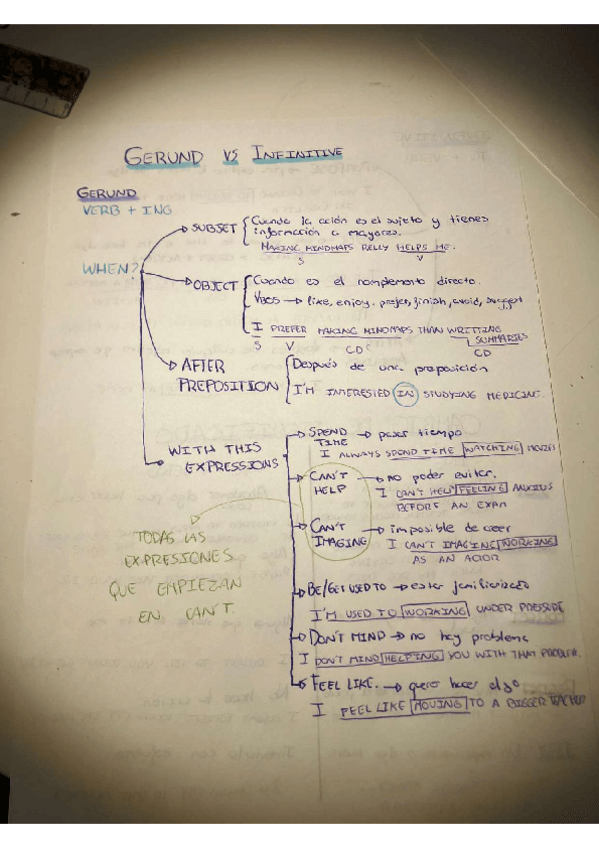 GERUND VS INFINITIVE
GERUND
VERB + ING
WHEN?
SUBSET
Cuando la acción es el sujeto y tienes
información a mayores.
MAKING MINDMAPS RELLY HELPS ME.
S V
OBJECT
Cuando es el complemento directo.
VBOS → like, enjoy, prefer, finish, avoid, suggest
I PREFER MAKING MINDMAPS THAN WRITTING
SUMMARIES
S V CD CD
AFTER
PREPOSITION
Después de una preposición
I'M INTERESTED IN STUDYING MEDICINE.
WITH THIS
EXPRESSIONS
SPEND
TIME → pasar tiempo
I ALWAYS SPEND TIME WATCHING MOVIES
CAN'T
HELP → no poder evitar.
I CAN'T HELP FEELING ANXIUS
BEFORE AN EXAM
CAN'T
IMAGING → imposible de creer
I CAN'T IMAGING WORKING
AS AN ACTOR
TODAS LAS
EXPRESIONES
QUE EMPIEZAN
EN CAN'T.
BE/GET USED TO → estar familiarizado
I'M USED TO WORKING UNDER PRESSURE
DON'T MIND → no hay problema
I DON'T MIND HELPING YOU WITH THAT PROBLEM.
FEEL LIKE → querer hacer algo
I FEEL LIKE MOVING TO A BIGGER TEACHER